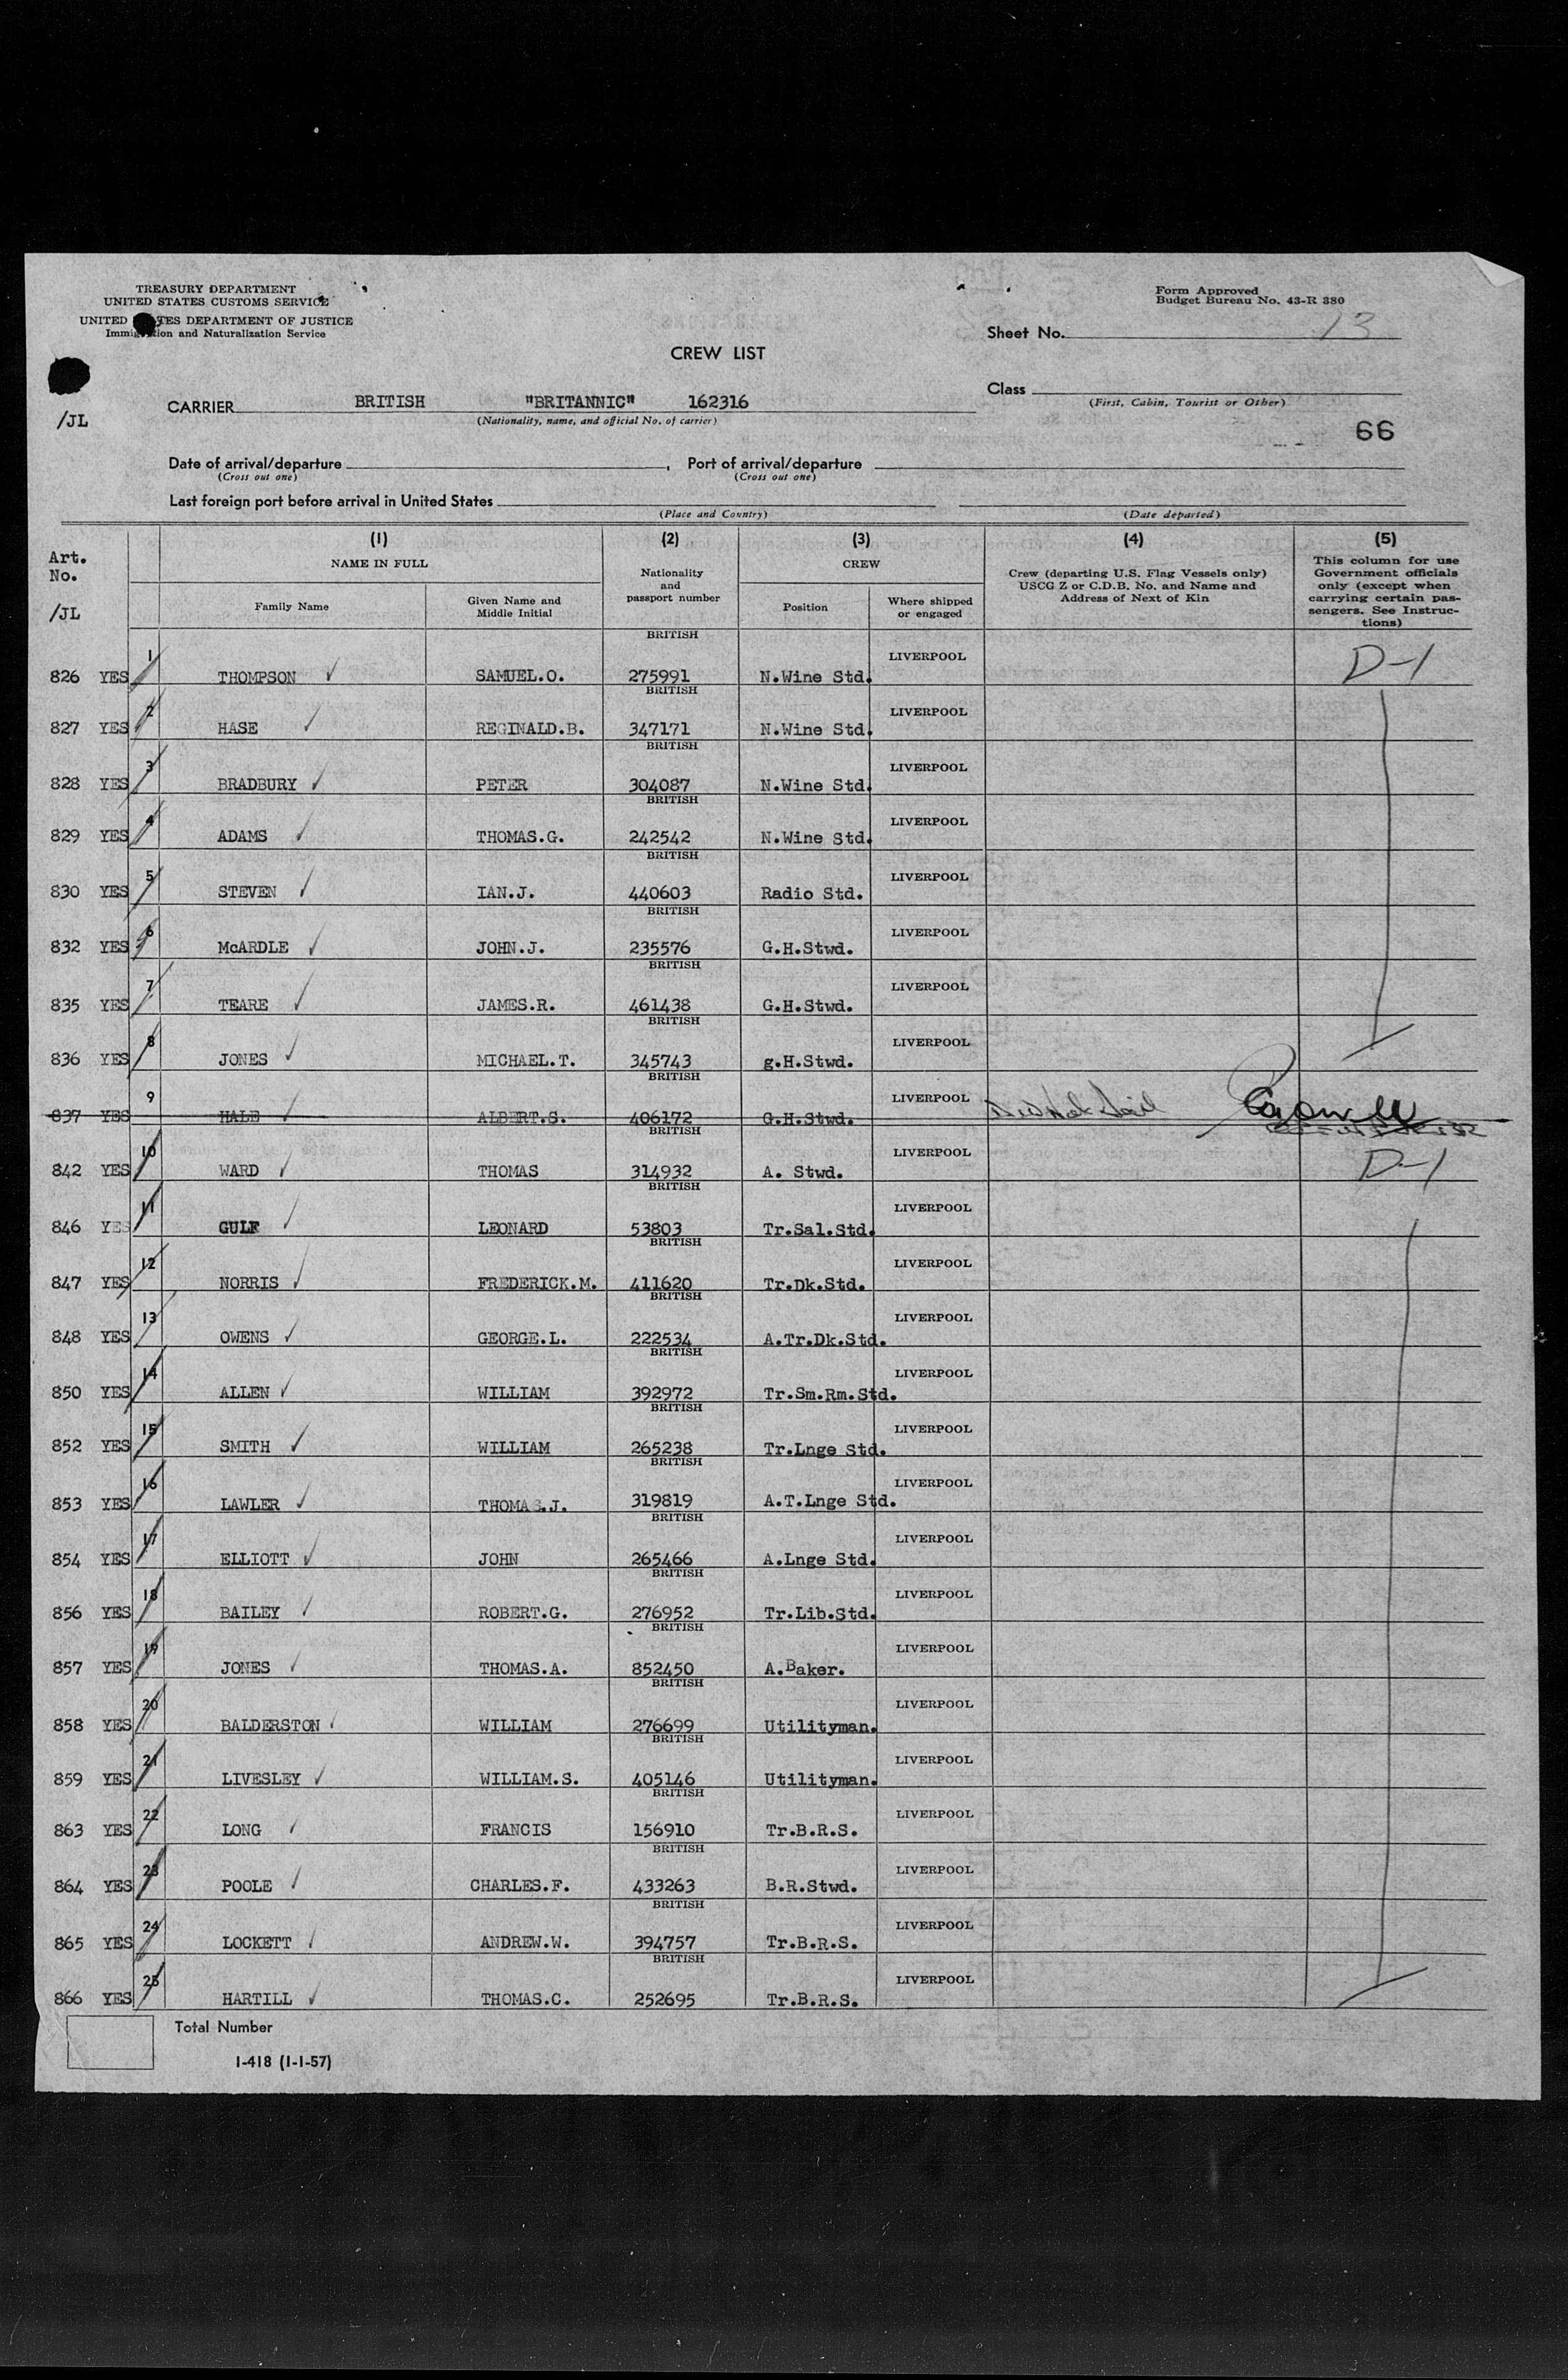 TREASURY DEPARTMENT
UNITED STATES CUSTOMS SERVICE
UNITED STATES DEPARTMENT OF JUSTICE
Immigration and Naturalization Service
Form Approved
Budget Bureau No. 43-R 380
Sheet No. 13
CREW LIST
Class
(First, Cabin, Tourist or Other)
/JL
CARRIER BRITISH "BRITANNIC" 162316
(Nationality, name, and official No. of carrier)
66
Date of arrival/departure , Port of arrival/departure
(Cross out one) (Cross out one)
Last foreign port before arrival in United States
(Place and Country) (Date departed)
Art. No. /JL
(1) (2) (3) (4) (5)
NAME IN FULL
Family Name
Given Name and Middle Initial
Nationality and passport number
CREW
Position
Where shipped or engaged
Crew (departing U.S. Flag Vessels only) USCG Z or C.D.B. No. and Name and Address of Next of Kin
This column for use Government officials only (except when carrying certain passengers. See Instructions)
826 YES 1 THOMPSON SAMUEL.O. BRITISH 275991 N.Wine Std. LIVERPOOL D-1
827 YES 2 HASE REGINALD.B. BRITISH 347171 N.Wine Std. LIVERPOOL
828 YES 3 BRADBURY PETER BRITISH 304087 N.Wine Std. LIVERPOOL
829 YES 4 ADAMS THOMAS.G. BRITISH 242542 N.Wine Std. LIVERPOOL
830 YES 5 STEVEN IAN.J. BRITISH 440603 Radio Std. LIVERPOOL
832 YES 6 McARDLE JOHN.J. BRITISH 235576 G.H.Stwd. LIVERPOOL
835 YES 7 TEARE JAMES.R. BRITISH 461438 G.H.Stwd. LIVERPOOL
836 YES 8 JONES MICHAEL.T. BRITISH 345743 g.H.Stwd. LIVERPOOL
837 YES 9 HALE ALBERT.S. BRITISH 406172 G.H.Stwd. LIVERPOOL Did Not Sail
842 YES 10 WARD THOMAS BRITISH 314932 A. Stwd. LIVERPOOL D-1
846 YES 11 GULF LEONARD BRITISH 53803 Tr.Sal.Std. LIVERPOOL
847 YES 12 NORRIS FREDERICK.M. BRITISH 411620 Tr.Dk.Std. LIVERPOOL
848 YES 13 OWENS GEORGE.L. BRITISH 222534 A.Tr.Dk.Std. LIVERPOOL
850 YES 14 ALLEN WILLIAM BRITISH 392972 Tr.Sm.Rm.Std. LIVERPOOL
852 YES 15 SMITH WILLIAM BRITISH 265238 Tr.Lnge Std. LIVERPOOL
853 YES 16 LAWLER THOMAS.J. BRITISH 319819 A.T.Lnge Std. LIVERPOOL
854 YES 17 ELLIOTT JOHN BRITISH 265466 A.Lnge Std. LIVERPOOL
856 YES 18 BAILEY ROBERT.G. BRITISH 276952 Tr.Lib.Std. LIVERPOOL
857 YES 19 JONES THOMAS.A. BRITISH 852450 A.Baker. LIVERPOOL
858 YES 20 BALDERSTON WILLIAM BRITISH 276699 Utilityman. LIVERPOOL
859 YES 21 LIVESLEY WILLIAM.S. BRITISH 405146 Utilityman. LIVERPOOL
863 YES 22 LONG FRANCIS BRITISH 156910 Tr.B.R.S. LIVERPOOL
864 YES 23 POOLE CHARLES.F. BRITISH 433263 B.R.Stwd. LIVERPOOL
865 YES 24 LOCKETT ANDREW.W. BRITISH 394757 Tr.B.R.S. LIVERPOOL
866 YES 25 HARTILL THOMAS.C. BRITISH 252695 Tr.B.R.S. LIVERPOOL
Total Number
I-418 (1-1-57)